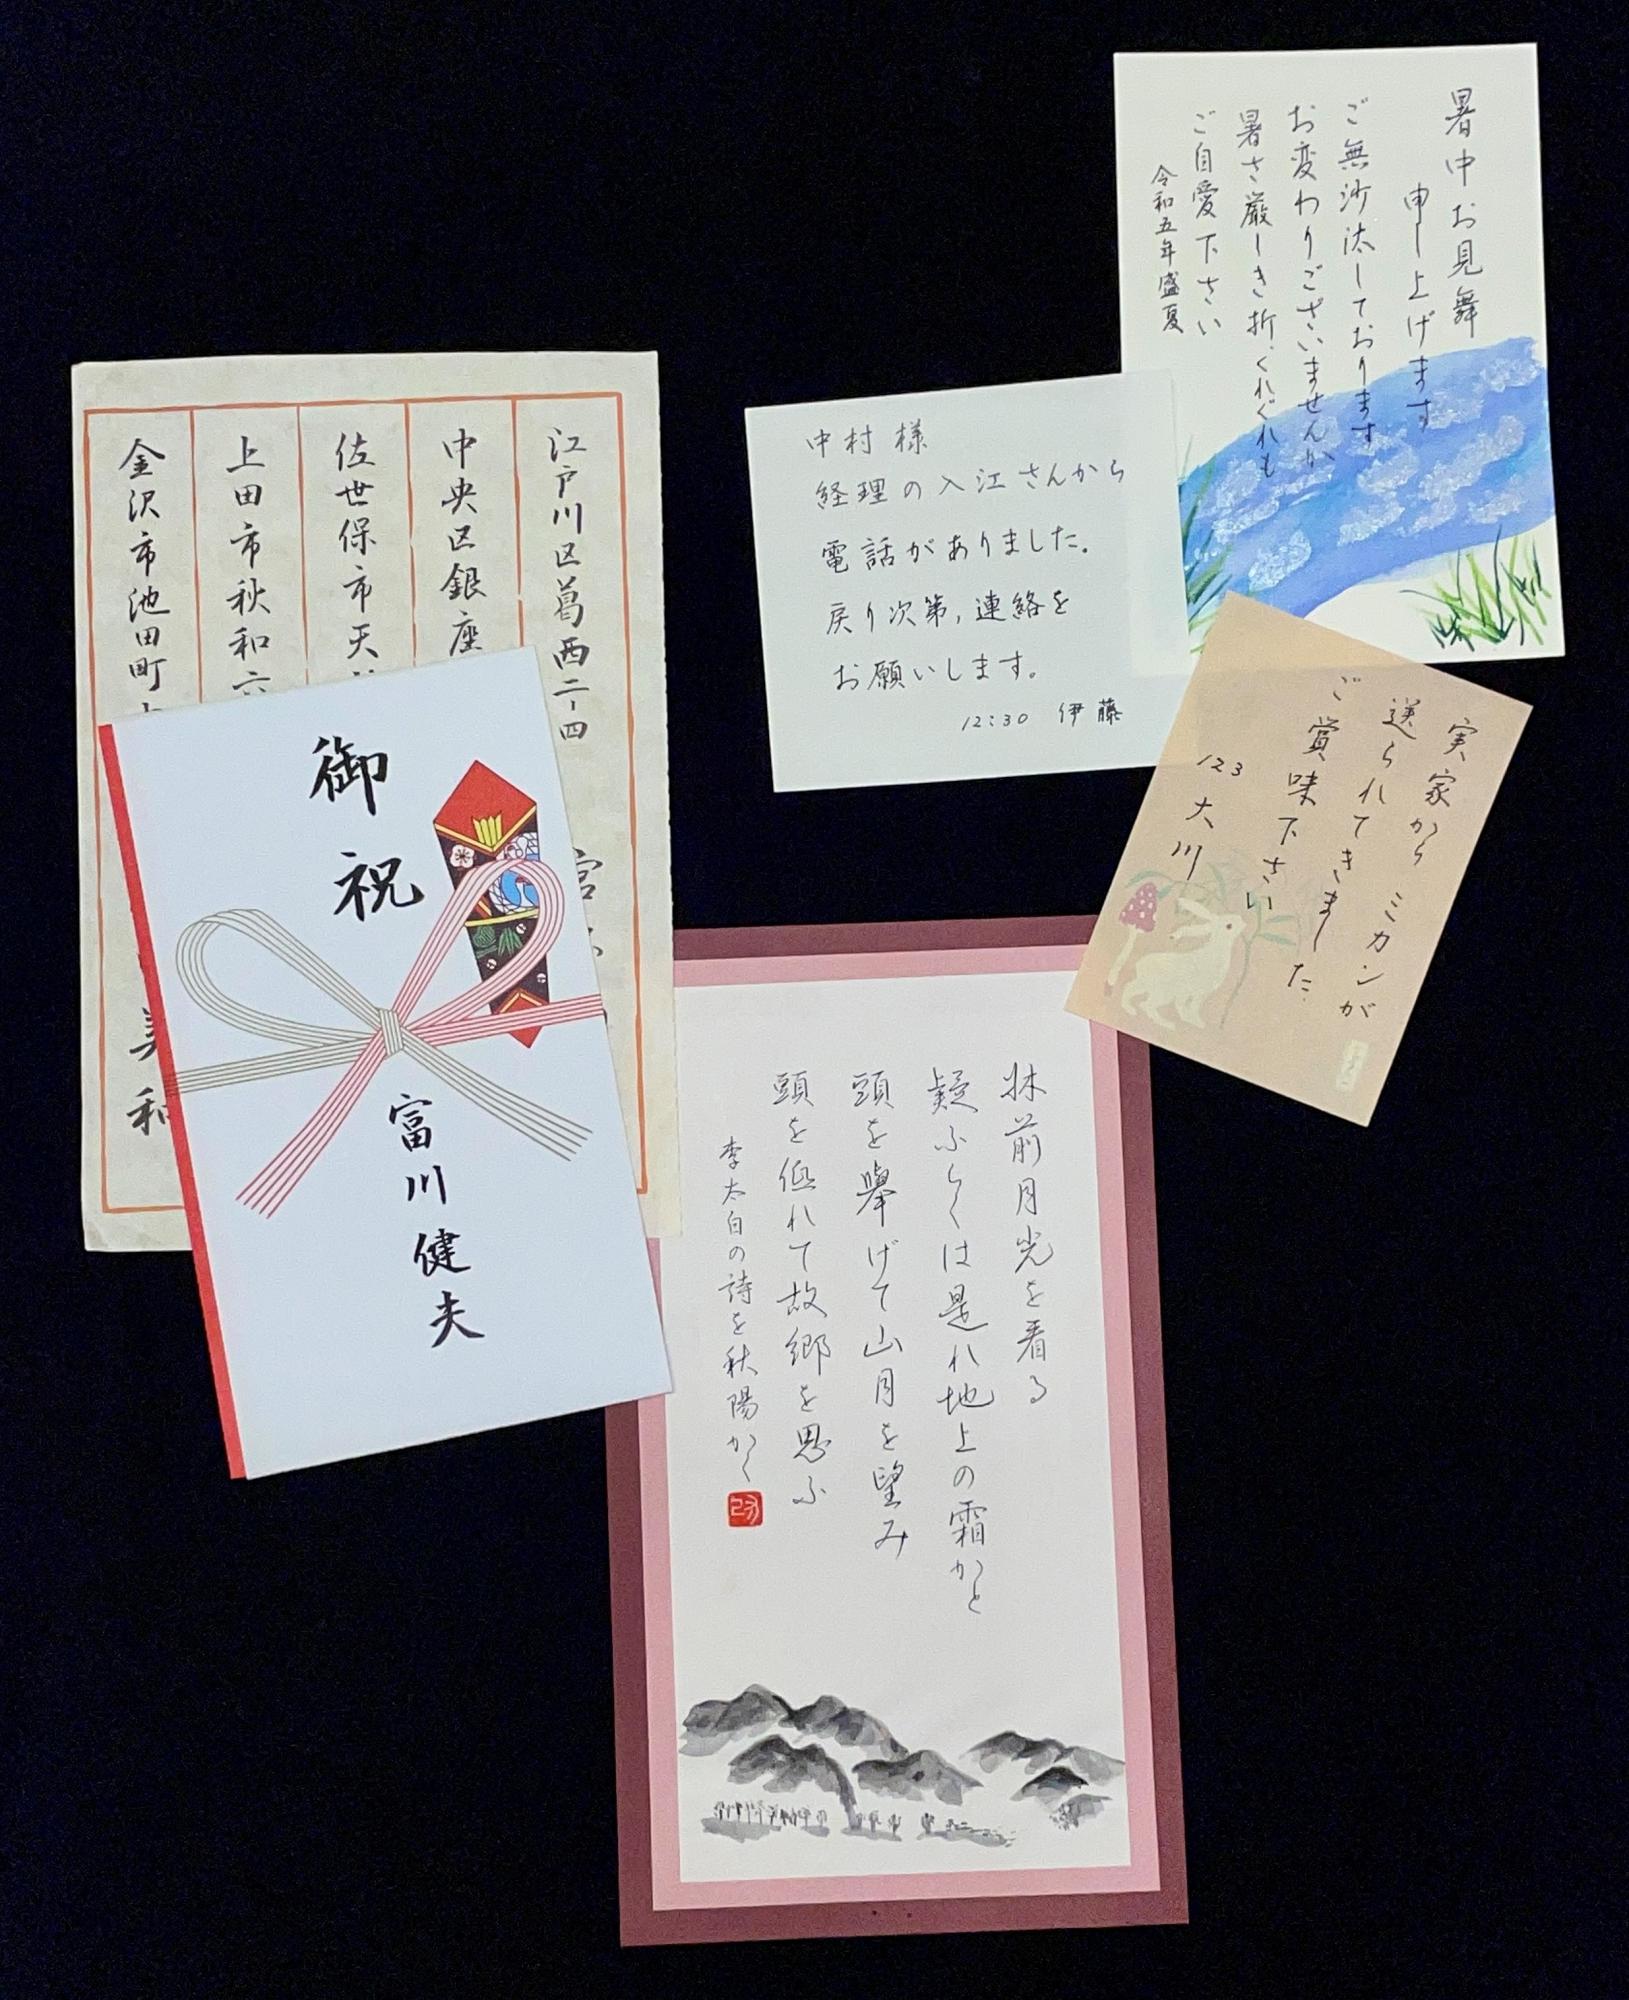 暑中お見舞
申し上げます
ご無沙汰しております
お変わりございませんか
暑さ厳しき折、くれぐれも
ご自愛下さい
令和五年盛夏
中村様
経理の入江さんから
電話がありました。
戻り次第,連絡を
お願いします。
12:30 伊藤
実家からミカンが
送られてきました
ご賞味下さい
123 大川
江戸川区葛西二ー四
中央区銀座
佐世保市天
上田市秋和六
金沢市池田町
美和
御祝
富川健夫
牀前月光を看る
疑ふらくは是れ地上の霜かと
頭を擧げて山月を望み
頭を低れて故郷を思ふ
李太白の詩を秋陽かく